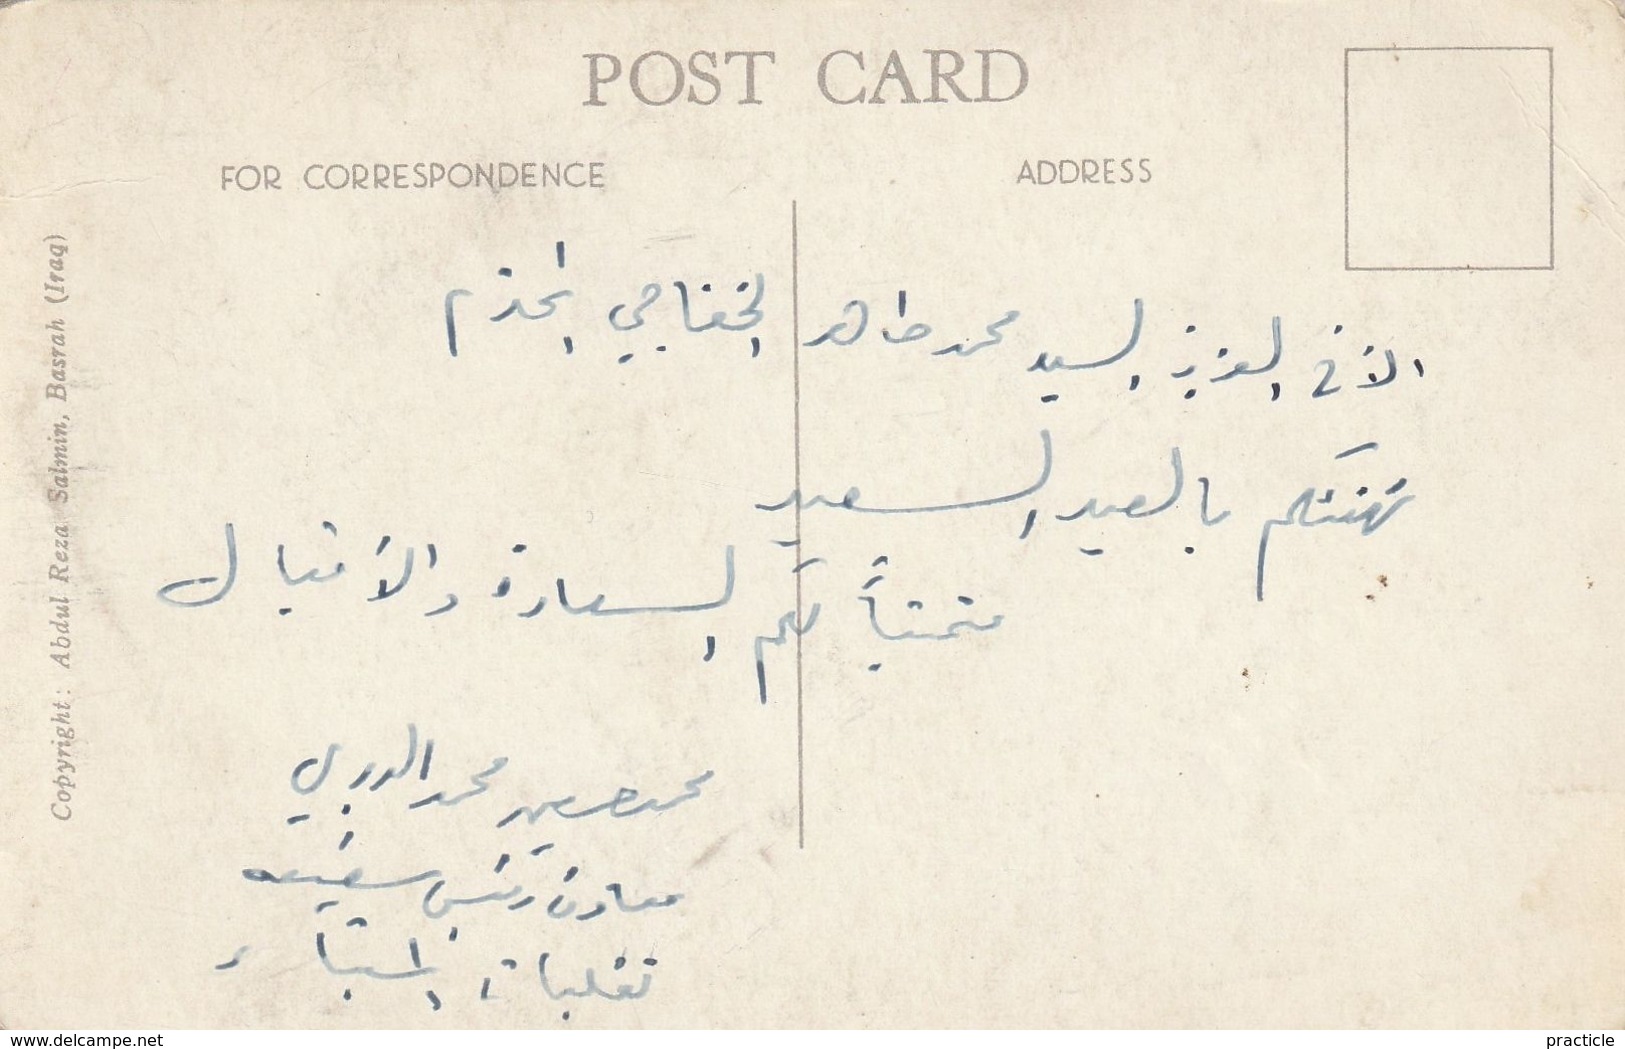 POST CARD
FOR CORRESPONDENCE
ADDRESS
Copyright: Abdul Reza Salmin, Basrah (Iraq)
الأخ العزيز السيد محمد طاهر الخفاجي المحترم
نهنئكم بالعيد السعيد
متمنياً لكم السعادة والأقبال
محمد حسين محمد الدوري
معاون رئيس سفينه
delcampe.net
practicle